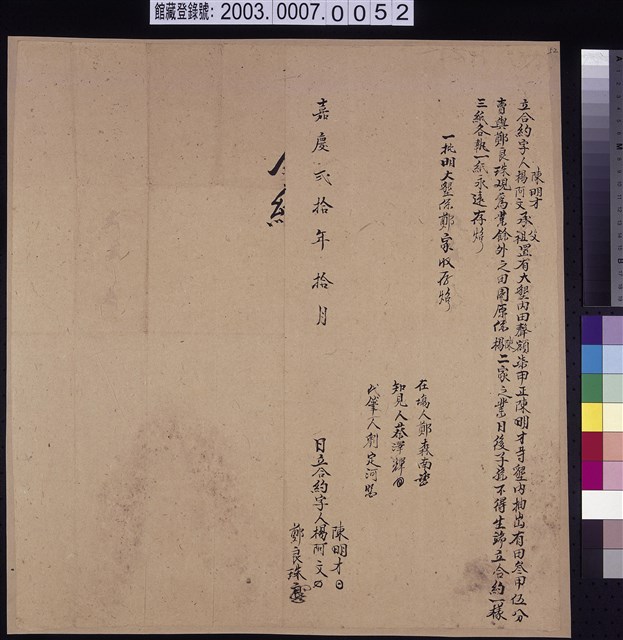 館藏登錄號: 2003.0007.0052
52
立合約字人陳明才楊阿文承祖父置有大墾內田聲額柒甲正陳明才等墾內抽出有田叁甲伍分
賣與鄭良珠觀為業餘外之田園原係陳楊二家之業日後子孫不得生端立合約一樣
三紙各執一紙永遠存炤
一批明大墾係鄭家收存炤
在場人鄭森南
知見人蔡澤輝
代筆人劉定河
嘉慶弍拾年拾月 日立合約字人陳明才
楊阿文
鄭良珠
合約